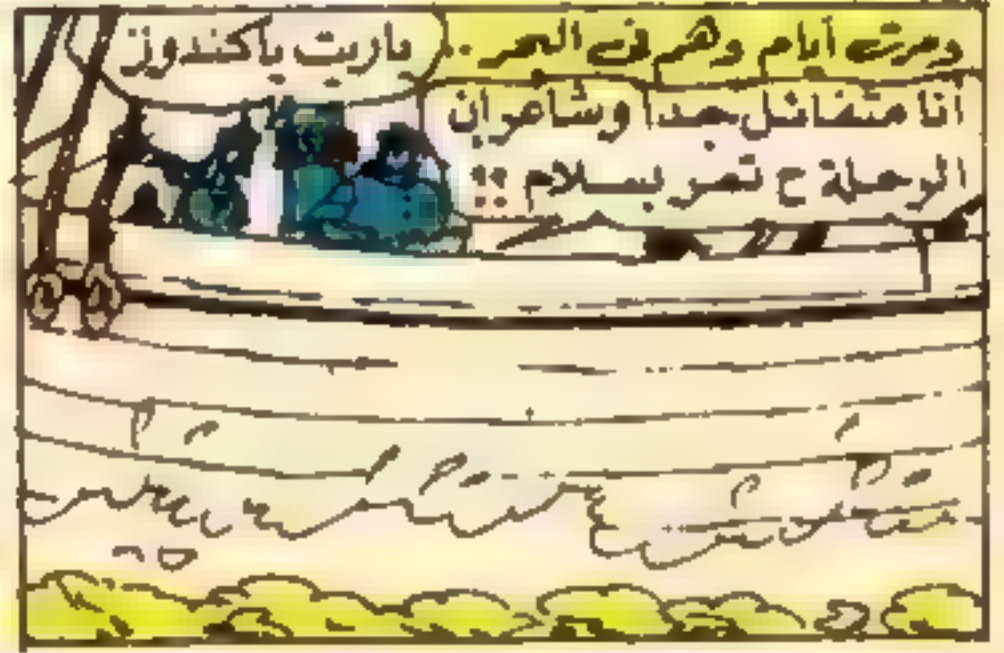 ومرت أيام وهم فى البحر ..
انا متفائل جدا وشاعر ان
الرحلة ح تمر بسلام ..
ياريت ياكندوز